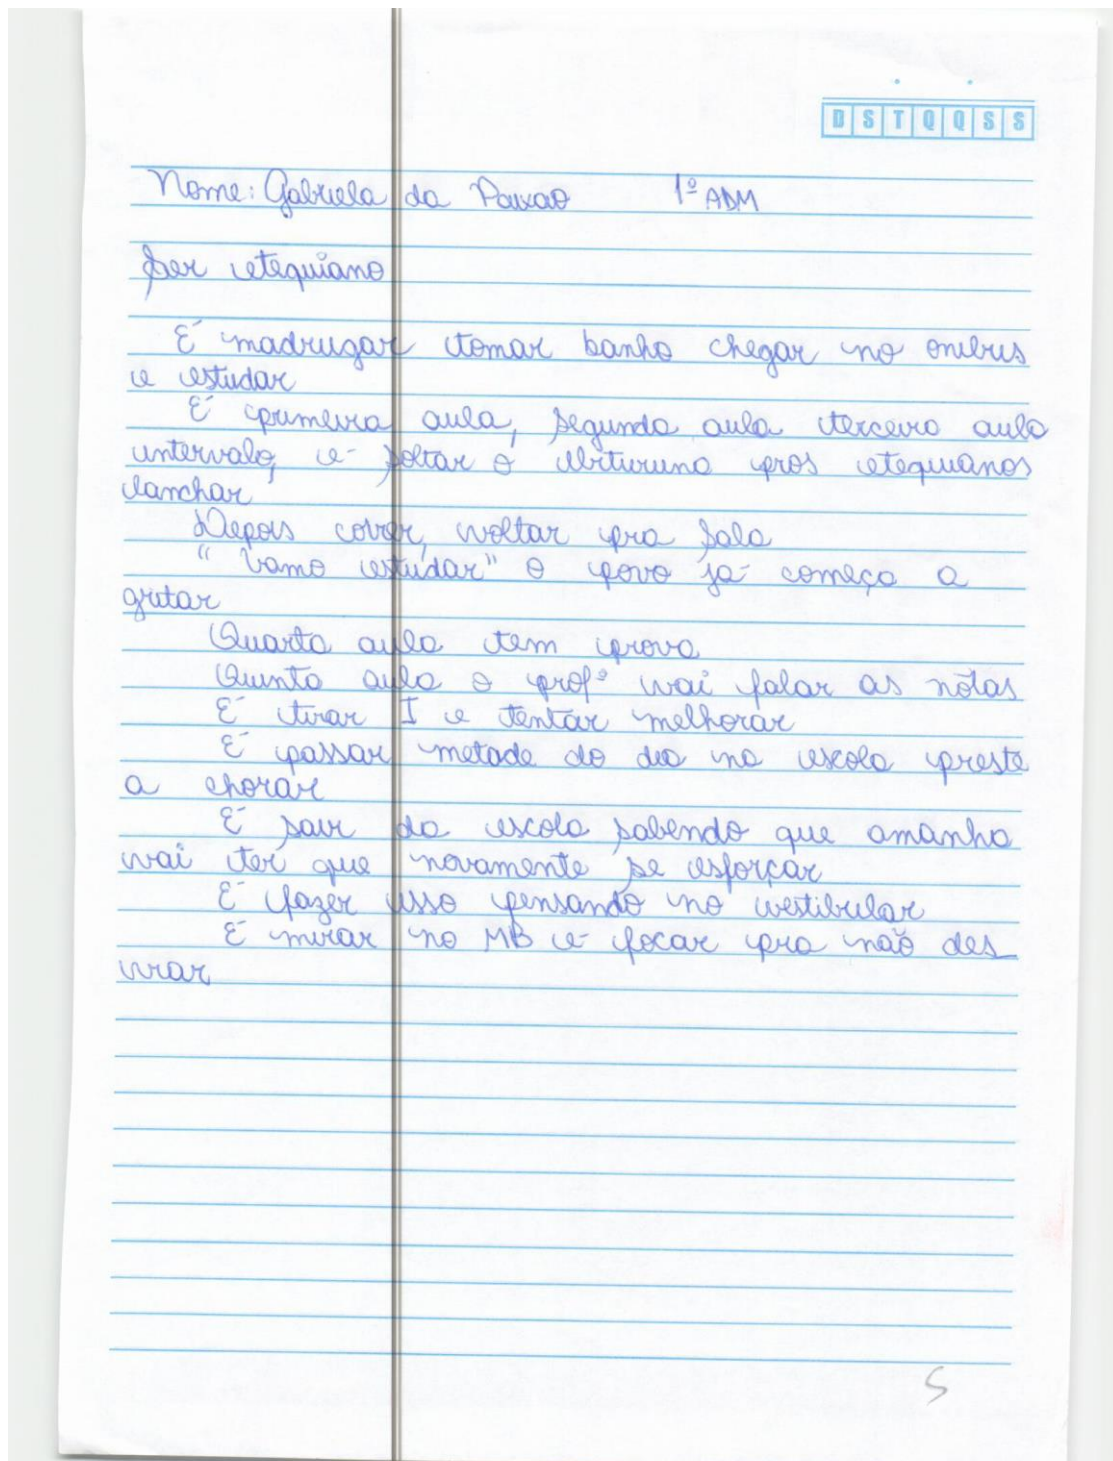 D S T Q Q S S
Nome: Gabriela da Paixao 1º ADM
Ser etequiano
É madrugar tomar banho chegar no onibus
e estudar
É primeira aula, segunda aula terceira aula
intervalo, e soltar o pros etequianos
lanchar
Depois correr, voltar pra sala
"Vamo estudar" o povo já começa a
gritar
Quarta aula tem prova
Quinta aula o profº vai falar as notas
É tirar I e tentar melhorar
É passar metade do dia na escola preste
a chorar
É sair da escola sabendo que amanha
vai ter que novamente se esforçar
É fazer isso pensando no vestibular
É mirar no MB e focar pra não des
virar
5